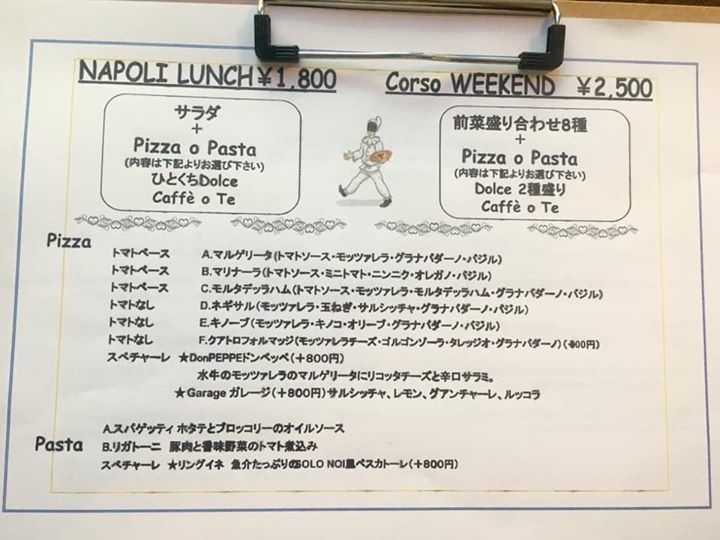 NAPOLI LUNCH ¥1,800
Corso WEEKEND ¥2,500
サラダ
+
Pizza o Pasta
(内容は下記よりお選び下さい)
ひとくちDolce
Caffè o Te
前菜盛り合わせ8種
+
Pizza o Pasta
(内容は下記よりお選び下さい)
Dolce 2種盛り
Caffè o Te
Pizza
トマトベース A.マルゲリータ(トマトソース・モッツァレラ・グラナパダーノ・バジル)
トマトベース B.マリナーラ(トマトソース・ミニトマト・ニンニク・オレガノ・バジル)
トマトベース C.モルタデッラハム(トマトソース・モッツァレラ・モルタデッラハム・グラナパダーノ・バジル)
トマトなし D.ネギサル(モッツァレラ・玉ねぎ・サルシッチャ・グラナパダーノ・バジル)
トマトなし E.キノーブ(モッツァレラ・キノコ・オリーブ・グラナパダーノ・バジル)
トマトなし F.クアトロフォルマッジ(モッツァレラチーズ・ゴルゴンゾーラ・タレッジオ・グラナパダーノ)
スペチャーレ ★DonPEPPEドンペッペ(+800円)
水牛のモッツァレラのマルゲリータにリコッタチーズと辛口サラミ。
★Garage ガレージ(+800円)サルシッチャ、レモン、グアンチャーレ、ルッコラ
A.スパゲッティ ホタテとブロッコリーのオイルソース
Pasta B.リガトーニ 豚肉と香味野菜のトマト煮込み
スペチャーレ ★リングイネ 魚介たっぷりのSOLO NOI風ペスカトーレ(+800円)